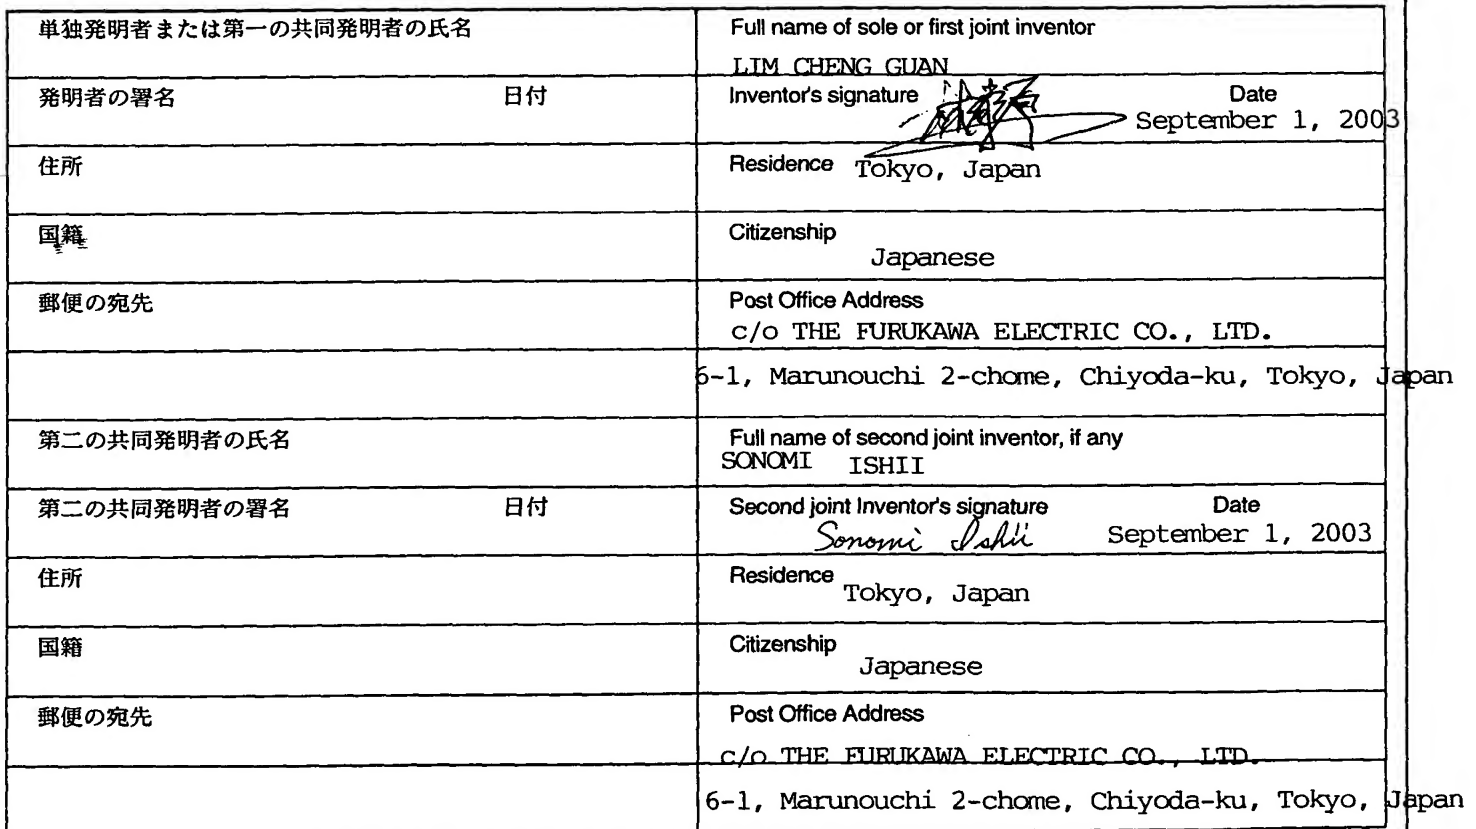 単独発明者または第一の共同発明者の氏名
Full name of sole or first joint inventor
LIM CHENG GUAN
発明者の署名 日付
Inventor's signature Date
September 1, 2003
住所
Residence Tokyo, Japan
国籍
Citizenship
Japanese
郵便の宛先
Post Office Address
c/o THE FURUKAWA ELECTRIC CO., LTD.
6-1, Marunouchi 2-chome, Chiyoda-ku, Tokyo, Japan
第二の共同発明者の氏名
Full name of second joint inventor, if any
SONOMI ISHII
第二の共同発明者の署名 日付
Second joint Inventor's signature Date
Sonomi Ishii September 1, 2003
住所
Residence
Tokyo, Japan
国籍
Citizenship
Japanese
郵便の宛先
Post Office Address
c/o THE FURUKAWA ELECTRIC CO., LTD.
6-1, Marunouchi 2-chome, Chiyoda-ku, Tokyo, Japan